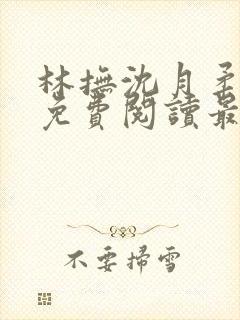 林撫沈月柔
免費閱讀最
不要掃雪